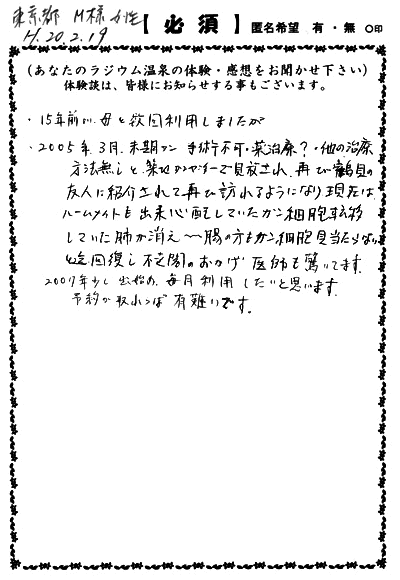 東京都 M様 女性
H.20.2.19
【必須】 匿名希望 有・無 ○印
(あなたのラジウム温泉の体験・感想をお聞かせ下さい)
体験談は、皆様にお知らせする事もございます。
・15年前に母と数回利用しましたが
・2005年.3月.末期ガン 手術不可・薬治療?・他の治療
方法無しと、築地がんセンターで見放され、再び鶴見の
友人に紹介されて再び訪れるようになり現在は
ルームメイトも出来心配していたガン細胞転移
していた肺が消え〜腸の方もガン細胞見当たらない
回復し不思議のおかげ 医師も驚いてます。
2007年少し出始め、毎月利用したいと思います。
予約が取れれば有難いです。